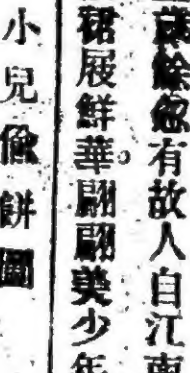 歲餘忽有故人自江南
裙屐鮮華翩翩美少年
小兒偷餅圖